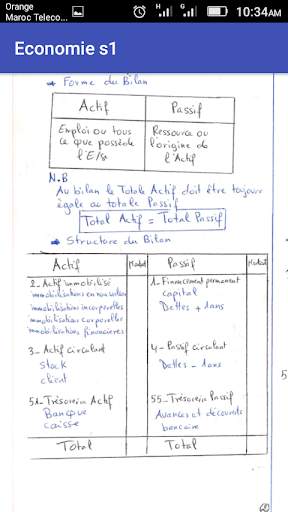 Orange
Maroc Teleco...
H
G
10:34AM
Economie s1
Forme du Bilan
Actif Passif
Emploi ou tous Ressource ou
ce que possède l'origine de
l'E/se l'Actif
N.B
Au bilan le Totale Actif doit être toujour
égale au totale Passif
Total Actif = Total Passif
Structure du Bilan
Actif Montant Passif Montant
2- Actif immobilisé 1- Financement permanent
immobilisations en non valeurs capital
immobilisations incorporelles Dettes + 1ans
immobilisations corporelles
immobilisations financières
3- Actif circulant 4- Passif circulant
stock Dettes - 1ans
client
51- Trésorerie Actif 55- Trésorerie Passif
Banque Avances et découverts
caisse bancaire
Total Total